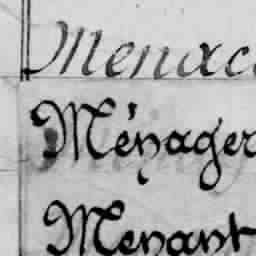 Menac
Ménager
Menant